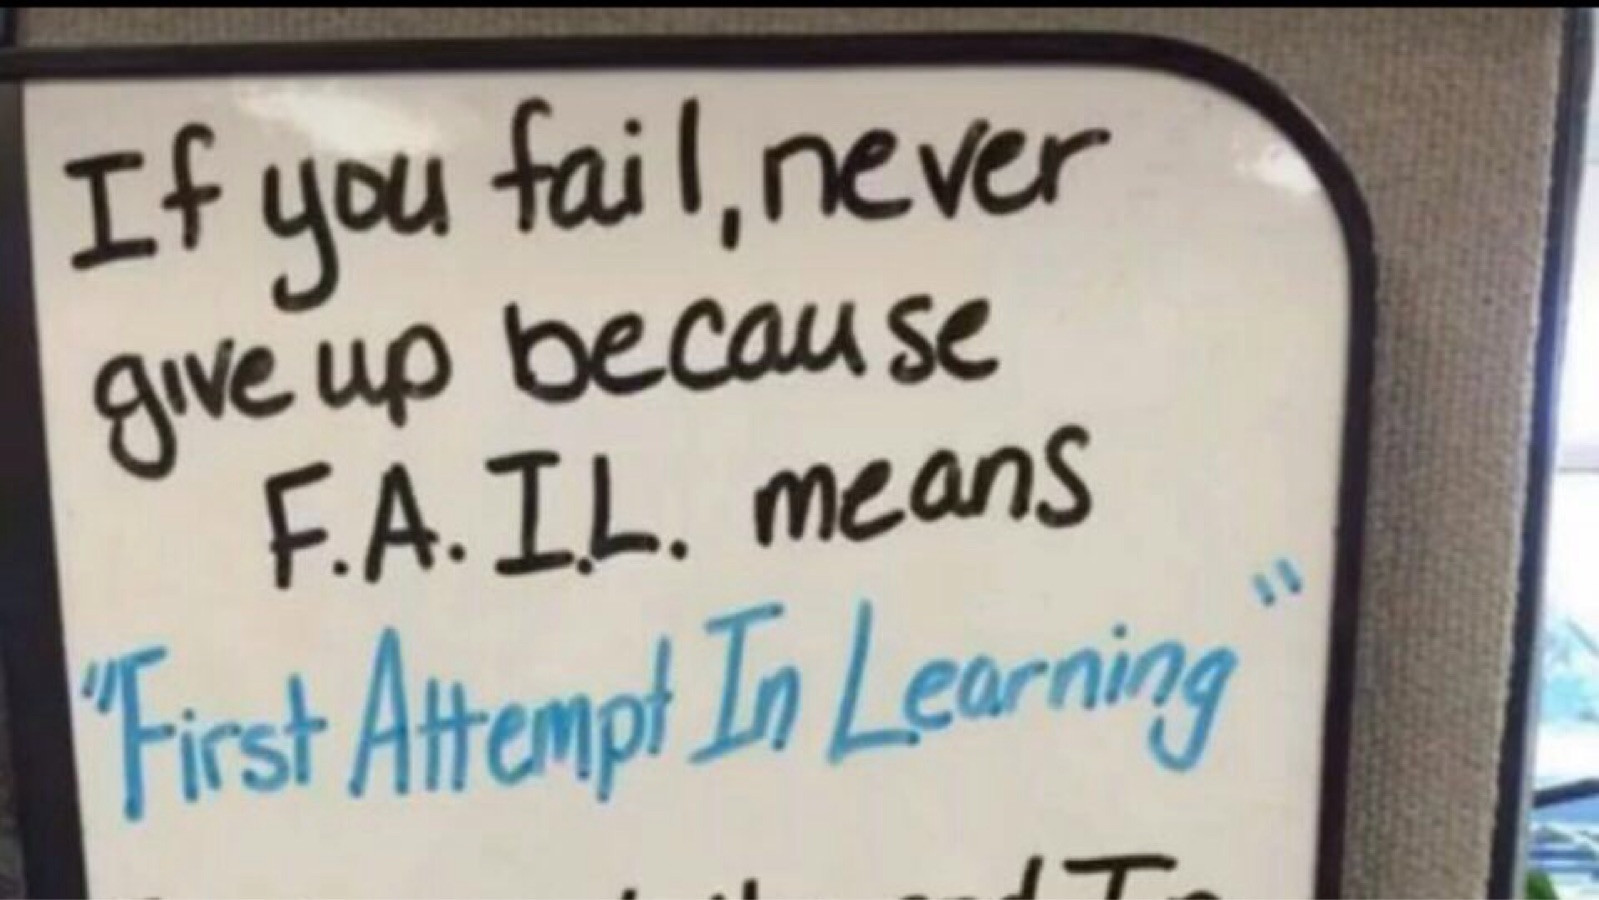 If you fail, never
give up because
F.A.I.L. means
"First Attempt In Learning"